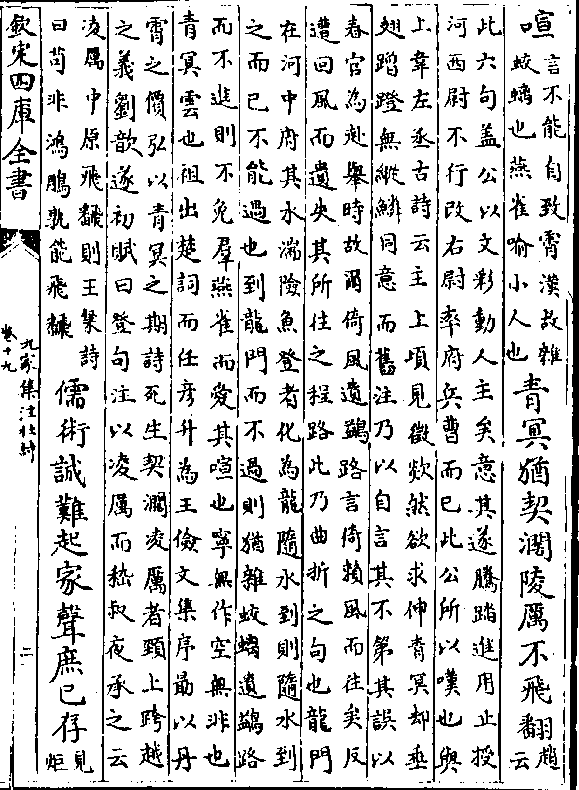 喧言不能自致霄漢故雜
蛟螭也燕雀喻小人也青冥猶契濶陵厲不飛翻趙云
此六句盖公以文彩動人主矣意其遂騰踏進用止授
河西尉不行改右尉率府兵曹而已此公所以嘆也與
上韋左丞古詩云主上頃見徵欻然欲求伸青冥却垂
翅蹭蹬無縱鱗同意而舊注乃以自言其不第其誤以
春官為赴舉時故爾倚風遺鷁路言倚頼風而往矣反
遭回風而遺失其所往之程路此乃曲折之句也龍門
在河中府其水湍險魚登者化為龍隨水到則隨水到
之而已不能過也到龍門而不過則猶雜蛟螭遺鷁路
而不進則不免羣燕雀而愛其喧也寧無作空無非也
青冥雲也祖出楚詞而任彦升為王儉文集序勗以丹
霄之價弘以青冥之期詩死生契濶凌厲者頸上跨越
之義劉歆遂初賦曰登句注以凌厲而嵇叔夜承之云
凌厲中原飛飜則王粲詩
曰苟非鴻鵰孰能飛飜儒術誠難起家聲庶已存見炬
欽定四庫全書
九家集注杜詩
卷十九
二